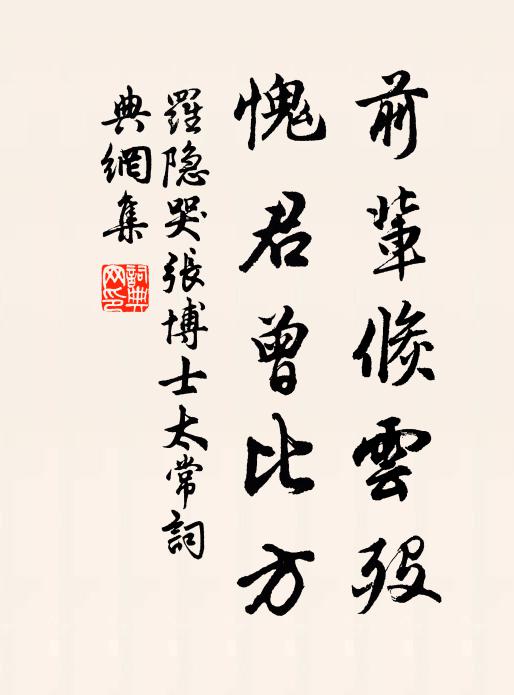 前輩倏雲歿
愧君曾比方
羅隐哭張博士太常詞
典網集
詞典网印